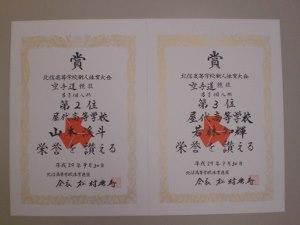 賞
北信高等学校新人体育大会
空手道競技
男子個人形
第2位
屋代高等学校
山本
栄誉を讃える
平成29年9月30日
北信高等学校体育連盟
会長
賞
北信高等学校新人体育大会
空手道競技
男子個人形
第3位
屋代高等学校
若林和輝
栄誉を讃える
平成29年9月30日
北信高等学校体育連盟
会長